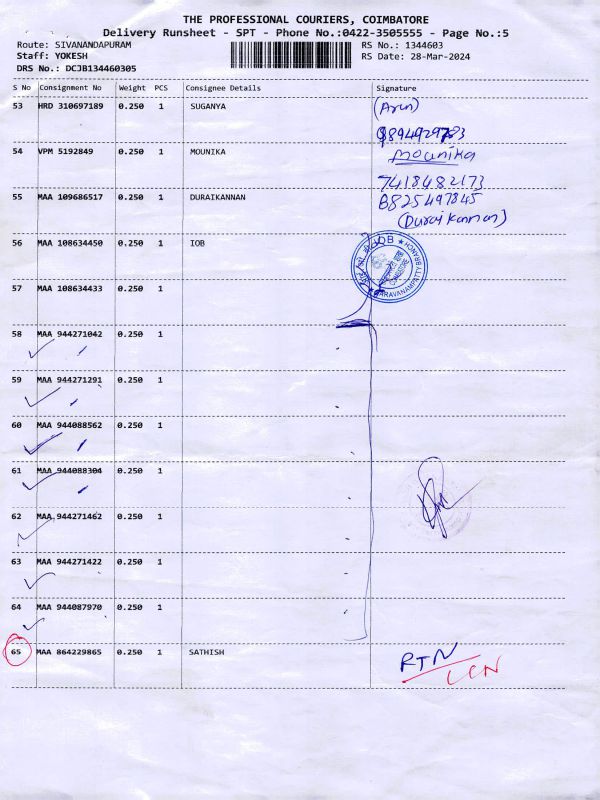 THE PROFESSIONAL COURIERS, COIMBATORE
Delivery Runsheet - SPT - Phone No.:0422-3505555 - Page No.:5
Route: SIVANANDAPURAM
RS No.: 1344603
Staff: YOKESH
RS Date: 28-Mar-2024
DRS No.: DCJB134460305
S No Consignment No Weight PCS Consignee Details Signature
53 HRD 310697189 0.250 1 SUGANYA (Arun)
8894929783
54 VPM 5192849 0.250 1 MOUNIKA mounika
7418482173
55 MAA 109686517 0.250 1 DURAIKANNAN 8825497845
(Durai Kannan)
56 MAA 108634450 0.250 1 IOB
IOB
SARAVANAMPATTY BRANCH
COIMBATORE
57 MAA 108634433 0.250 1
58 MAA 944271042 0.250 1
59 MAA 944271291 0.250 1
60 MAA 944088562 0.250 1
61 MAA 944088304 0.250 1
62 MAA 944271462 0.250 1
63 MAA 944271422 0.250 1
64 MAA 944087970 0.250 1
65 MAA 864229865 0.250 1 SATHISH RTN
LCN